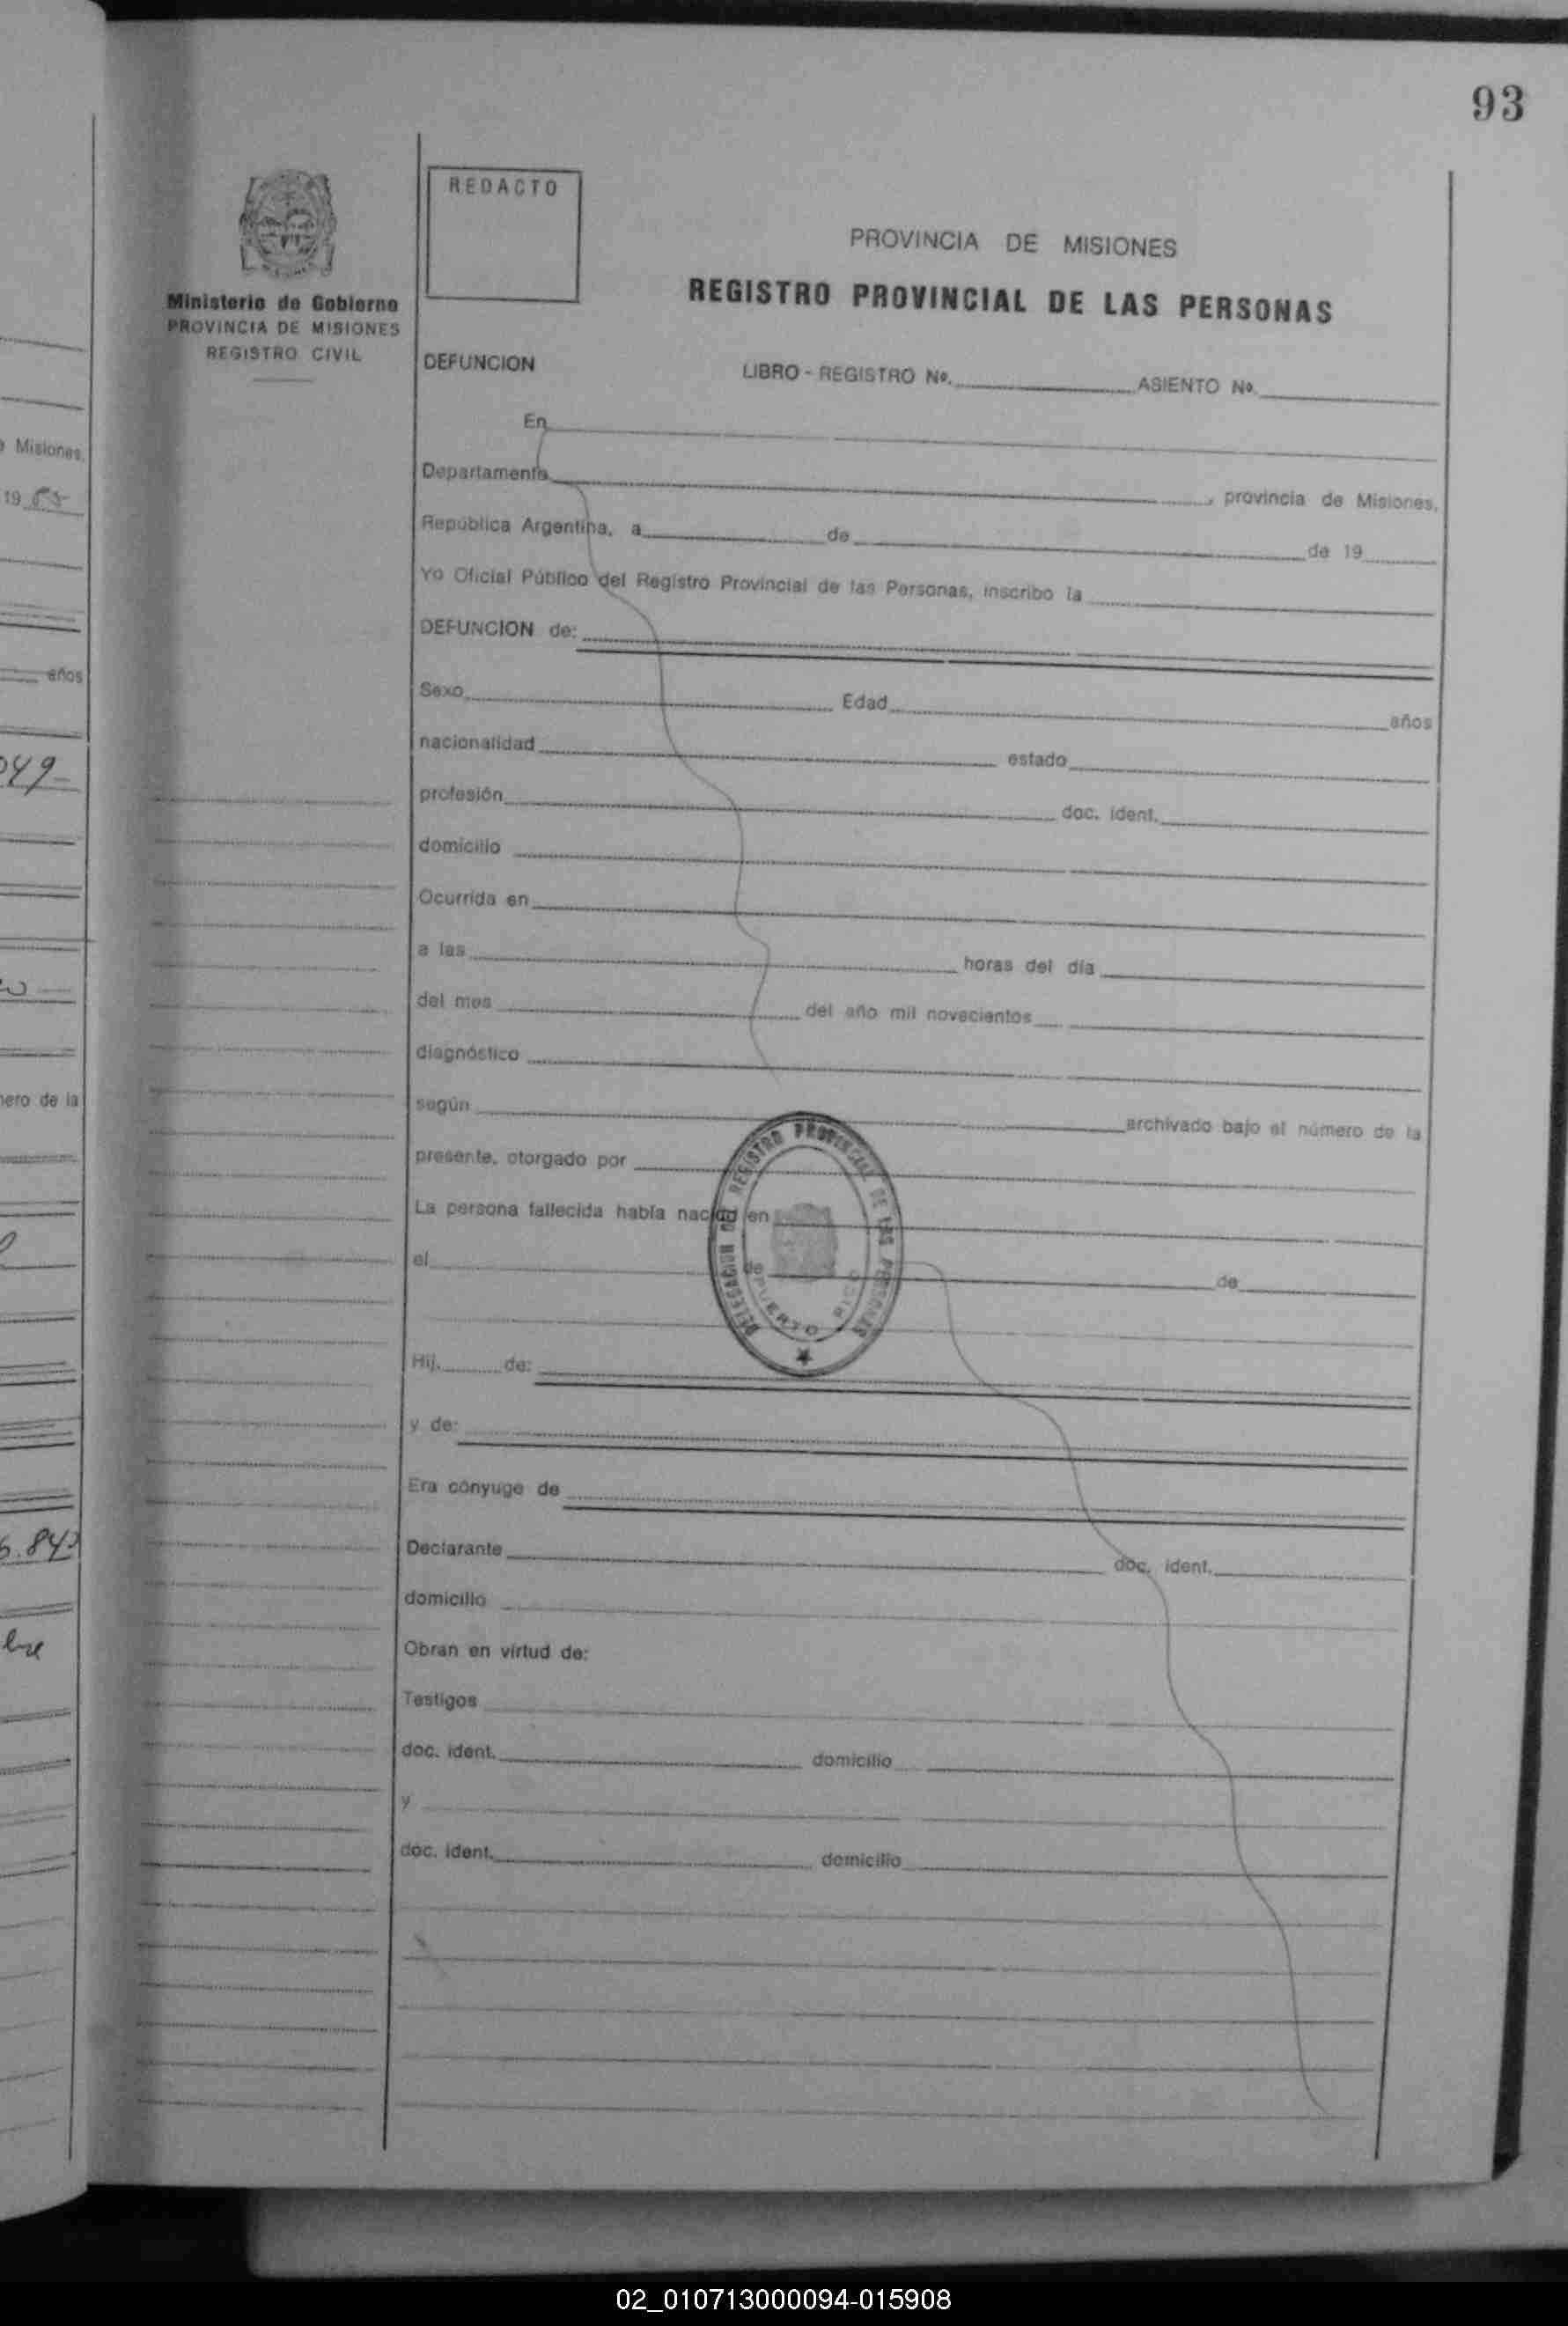 93
REDACTO
Ministerio de Gobierno
PROVINCIA DE MISIONES
REGISTRO CIVIL
PROVINCIA DE MISIONES
REGISTRO PROVINCIAL DE LAS PERSONAS
DEFUNCION LIBRO - REGISTRO Nº. ASIENTO Nº.
En
Departamento , provincia de Misiones,
República Argentina, a de de 19
Yo Oficial Público del Registro Provincial de las Personas, inscribo la
DEFUNCION de:
Sexo Edad años
nacionalidad estado
profesión doc. ident.
domicilio
Ocurrida en
a las horas del día
del mes del año mil novecientos
diagnóstico
según archivado bajo el número de la
presente, otorgado por
La persona fallecida había nacido en
el de de
Hij. de:
y de:
Era cónyuge de
Declarante doc. ident.
domicilio
Obran en virtud de:
Testigos
doc. ident. domicilio
y
doc. ident. domicilio
DELEGACION DEL REGISTRO PROVINCIAL DE LAS PERSONAS
PUERTO RICO
Misiones,
19
años
049
de la
5.843
02_010713000094-015908